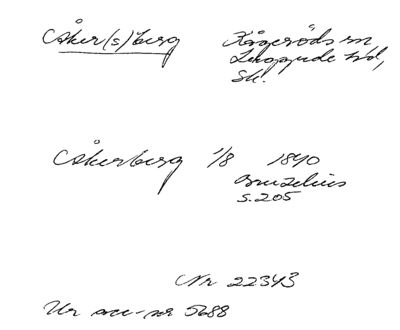 Åker(s)berg Kågeröds sn
Luggude hd,
Sk.
Åkerberg 1/8 1890
Bruzelius
s. 205
Nr 22343
Ur acc-nr 5688